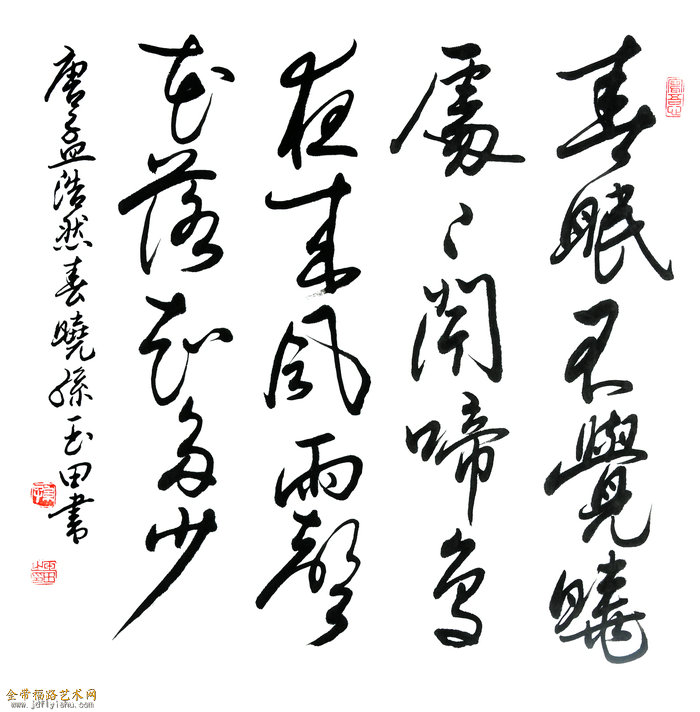 春眠不覺曉
處〻聞啼鳥
夜来風雨聲
花落知多少
唐孟浩然春曉孫玉田书
金带福路艺术网
www.jdflyishu.com